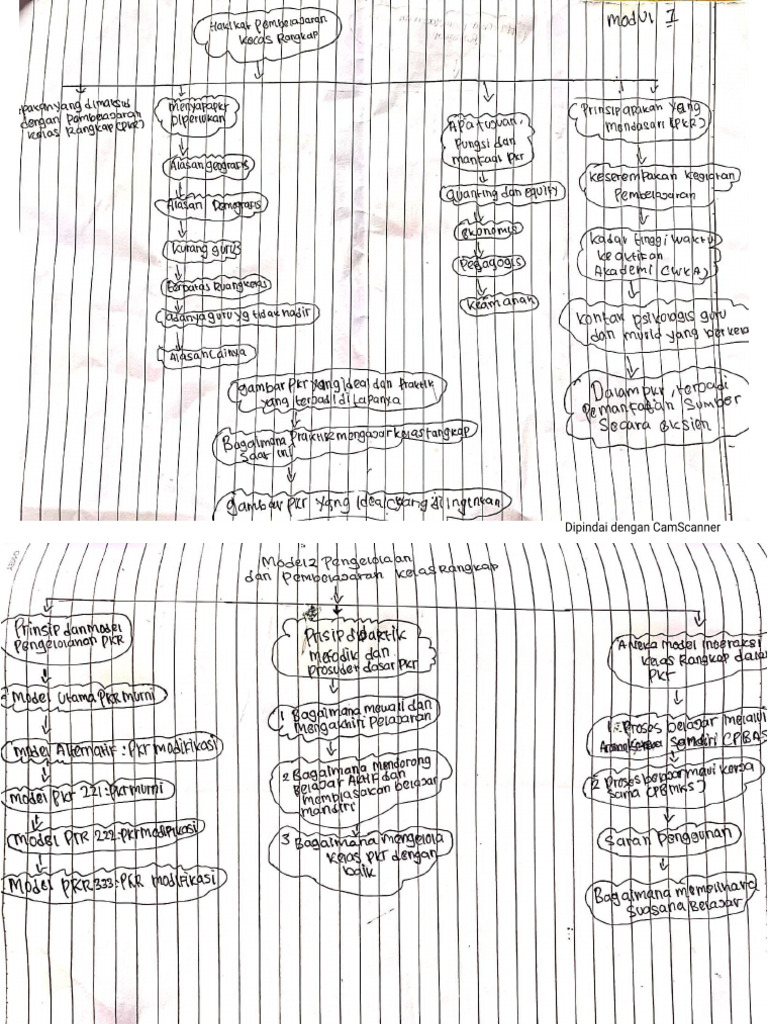 Hakikat Pembelajaran
Kelas Rangkap
Modul 1
apakah yang dimaksud
dengan Pembelajaran
Kelas Rangkap (PKR)
Menyapa pkr
Diperlukan
Alasan geografis
Alasan Demografis
Kurang guru
Terbatas Ruang kelas
adanya guru yg tidak hadir
Alasan Lainya
Apa tujuan,
Fungsi dan
manfaat pkr
Quanting dan equity
ekonomis
Pegagogis
keamanan
Prinsip apakah yang
mendasari (PKR)
keserempakan kegiatan
Pembelajaran
kadar tinggi waktu
keaktifan
Akademi (WKA)
kontak psikologis guru
dan murid yang berkela
Dalam pkr, terjadi
Pemanfatan Sumber
Secara efisien
gambar pkr yang ideal dan Praktik
yang terjadi di lapanya
Bagaimana Praktik mengajar kelas rangkap
Saat ini
gambar pkr yang ideal yang di inginkan
Dipindai dengan CamScanner
Model 2 Pengelolaan
dan Pembelajaran Kelas Rangkap
Prinsip dan model
Pengelolanan PKR
Model Utama PKR murni
model Alternatif : Pkr modifikasi
model PKr 221 : pkr murni
model PKR 222 : pkr modifikasi
Model PKR 333 : PKR modifikasi
Prisip didaktik
Metodik dan
prosuder dasar Pkr
1 Bagaimana mewali dan
Mengakhiri Pelajaran
2 Bagaimana mendorong
Belajar Aktif dan
membiasakan belajar
mandiri
3 Bagaimana mengelola
kelas pkr dengan
baik
Aneka model interaksi
kelas Rangkap dalam
Pkr
1. Proses belajar melalui
Sendiri (PBAS
2 Proses belajar malui kerja
sama (PBMKS)
Saran Penggunan
Bagaimana memelihara
suasana Belajar